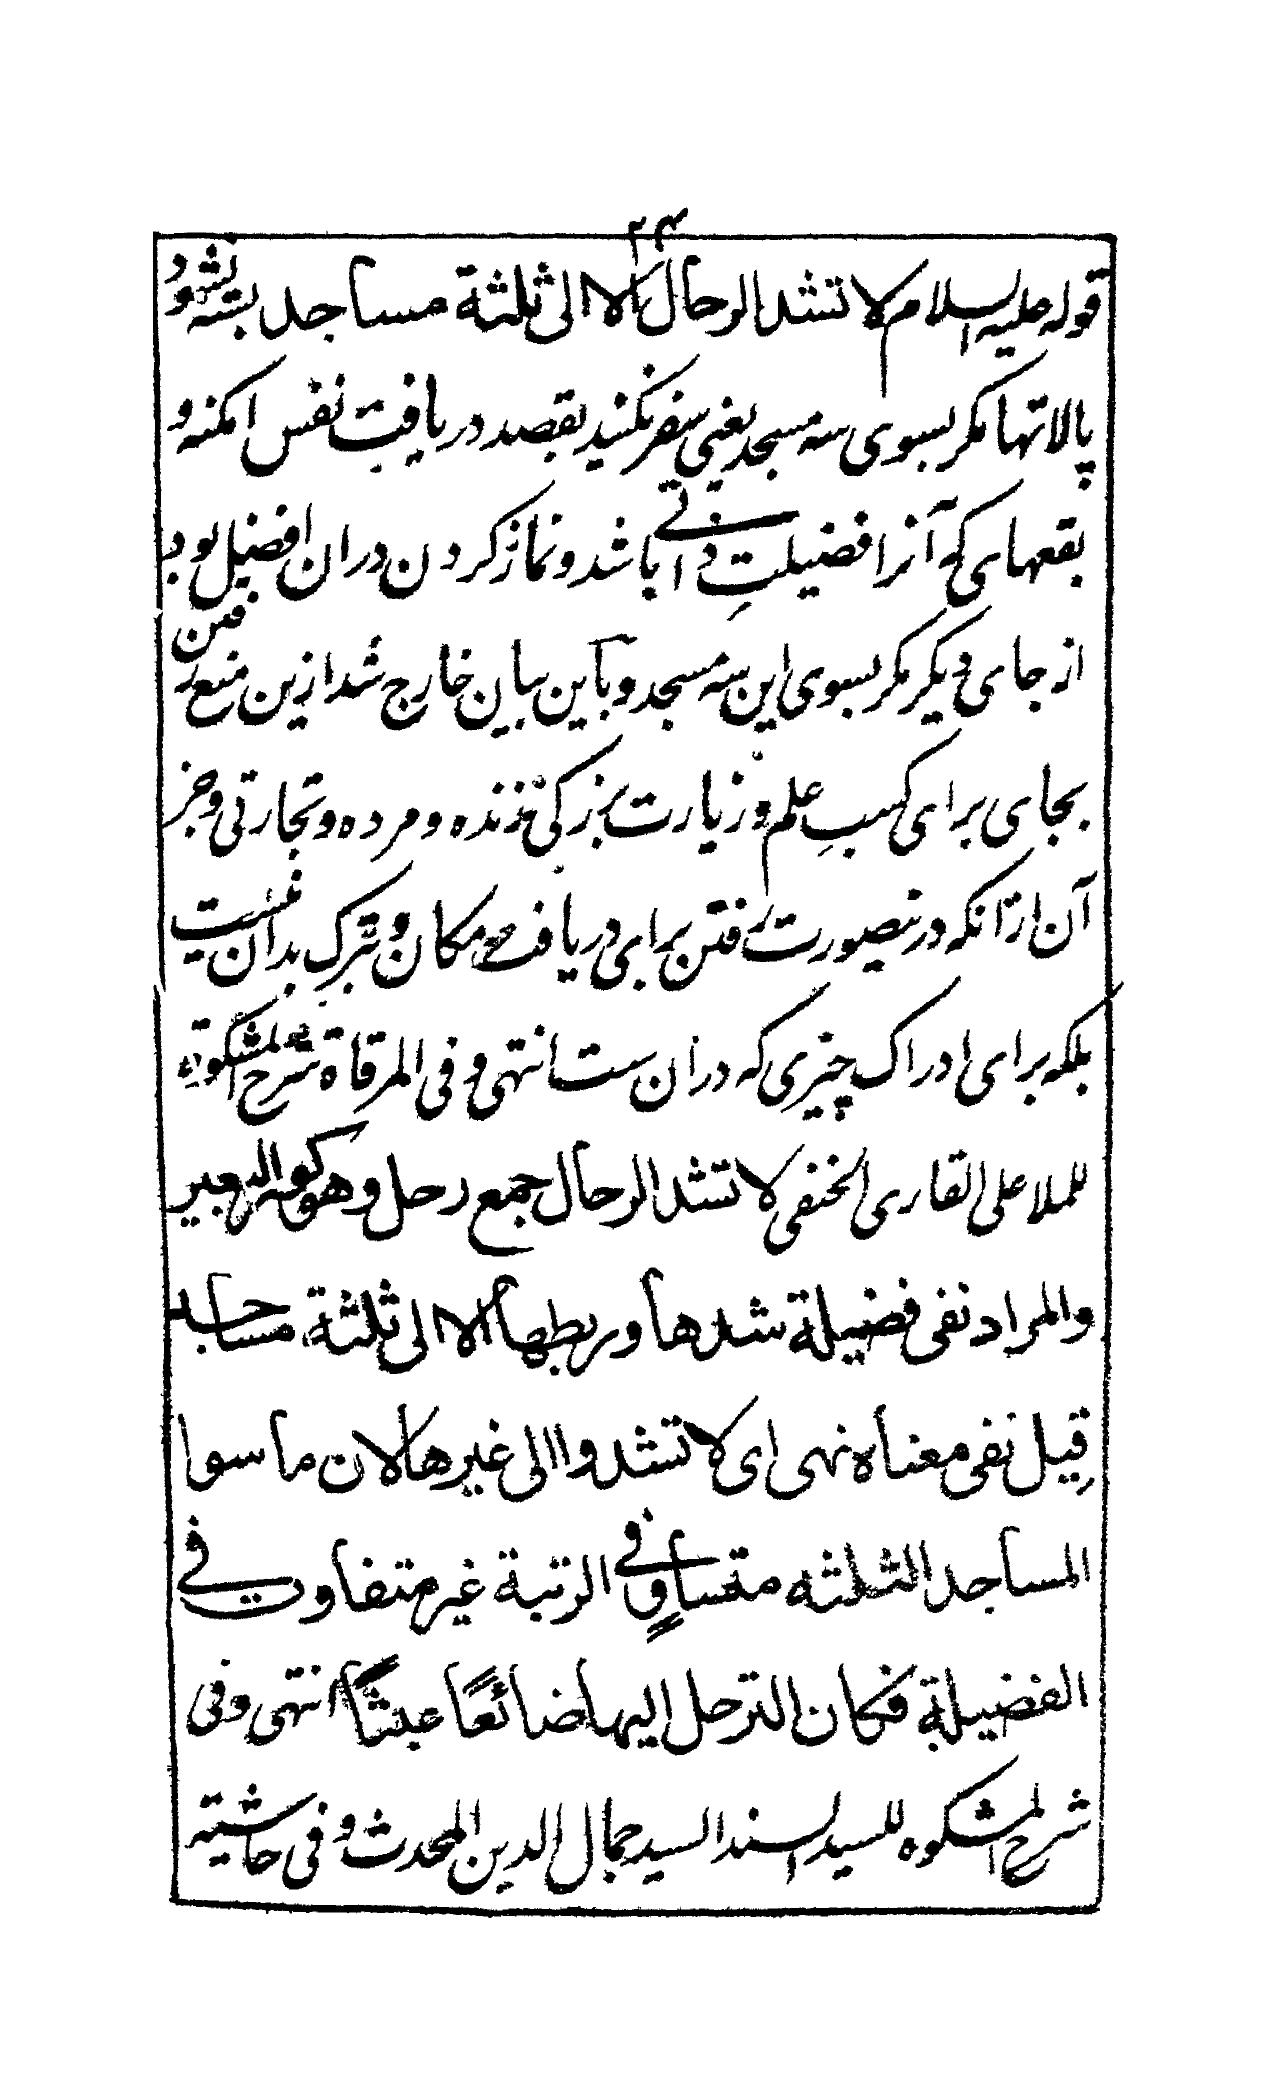 ۲۳
قوله علیه السلام لا تشد الرحال الا الی ثلثة مساجد بسته نشود
پالانها مکر بسوی سه مسجد یعنی سفر نکنید بقصد دریافت نفس امکنه و
بقعهای که آنرا فضیلتِ ذاتی باشد و نماز کردن دران افضل بود
از جای دیکر مکر بسوی این سه مسجد و باین بیان خارج شد ازین منع رفتن
بجای برای کسبِ علم و زیارت بزرکی زنده و مرده و تجارتی و جز
آن ازانکه درینصورت رفتن برای دریافت مکان و تبرک بدان نیست
بلکه برای ادراک چیزی که دران ست انتهی و فی المرقاة شرح المشکوة
للملا علی القاری الحنفی لا تشد الرحال جمع رحل و هو کور البعیر
والمراد نفی فضیلة شدها و ربطها الا الی ثلثة مساجد
قیل نفی معناه نهی ای لا تشدوا الی غیرها لان ما سوا
المساجد الثلثه متساوٍ فی الرتبة غیر متفاوت فی
الفضیلة فکان الترحل الیها ضائعًا عبثًا انتهی و فی
شرح المشکوه للسید السند السید جمال الدین المحدث و فی حاشیته